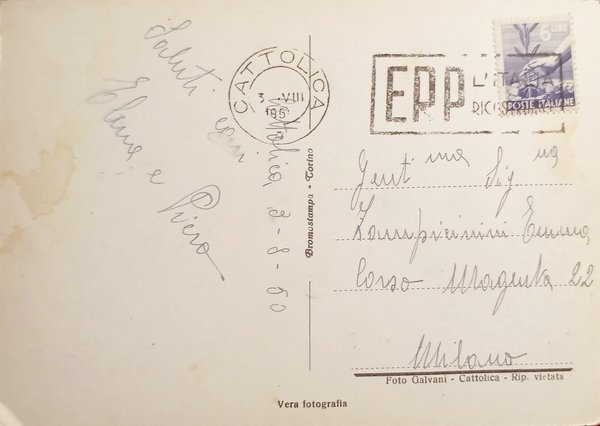 Saluti cari
Elena e
Piero
Cattolica 2-8-50
CATTOLICA
3 VIII
195
ERP
L'ITALIA
6 LIRE
POSTE ITALIANE
Bromostampa - Torino
Gent ma Sig na
Zampicinini Emma
Corso Magenta 22
Milano
Foto Galvani - Cattolica - Rip. vietata
Vera fotografia